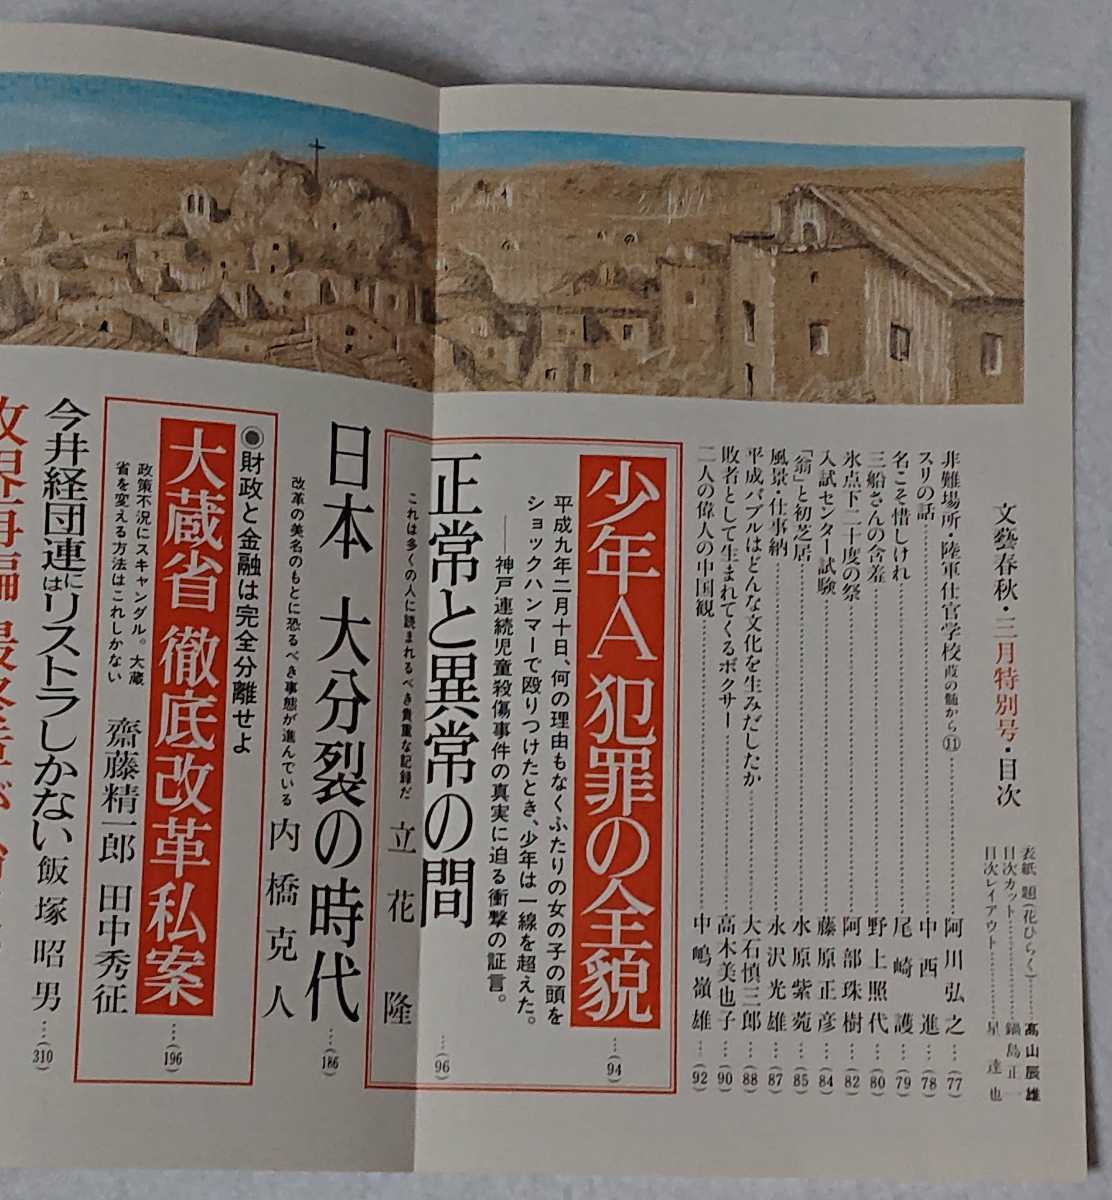 文藝春秋・三月特別号・目次
表紙 題(花ひらく)……髙山辰雄
目次カット……鍋島正一
目次レイアウト……星達也
非難場所・陸軍仕官学校 葭の髄から⑪……阿川弘之…(77)
スリの話……中西進…(78)
名こそ惜しけれ……尾崎護…(79)
三船さんの含羞……野上照代…(80)
氷点下二十度の祭……阿部珠樹…(82)
入試センター試験……藤原正彦…(84)
「翁」と初芝居……水原紫苑…(85)
風景・仕事納……永沢光雄…(87)
平成バブルはどんな文化を生みだしたか……大石慎三郎…(88)
敗者として生まれてくるボクサー……高木美也子…(90)
二人の偉人の中国観……中嶋嶺雄…(92)
少年A 犯罪の全貌…(94)
平成九年二月十日、何の理由もなくふたりの女の子の頭を
ショックハンマーで殴りつけたとき、少年は一線を超えた。
――神戸連続児童殺傷事件の真実に迫る衝撃の証言。
正常と異常の間…(96)
これは多くの人に読まれるべき貴重な記録だ 立花 隆
日本 大分裂の時代…(186)
改革の美名のもとに恐るべき事態が進んでいる 内橋克人
◉財政と金融は完全分離せよ
大蔵省 徹底改革私案…(196)
政策不況にスキャンダル。大蔵
省を変える方法はこれしかない 齋藤精一郎 田中秀征
今井経団連にはリストラしかない 飯塚昭男…(310)
政界再編 最終章が